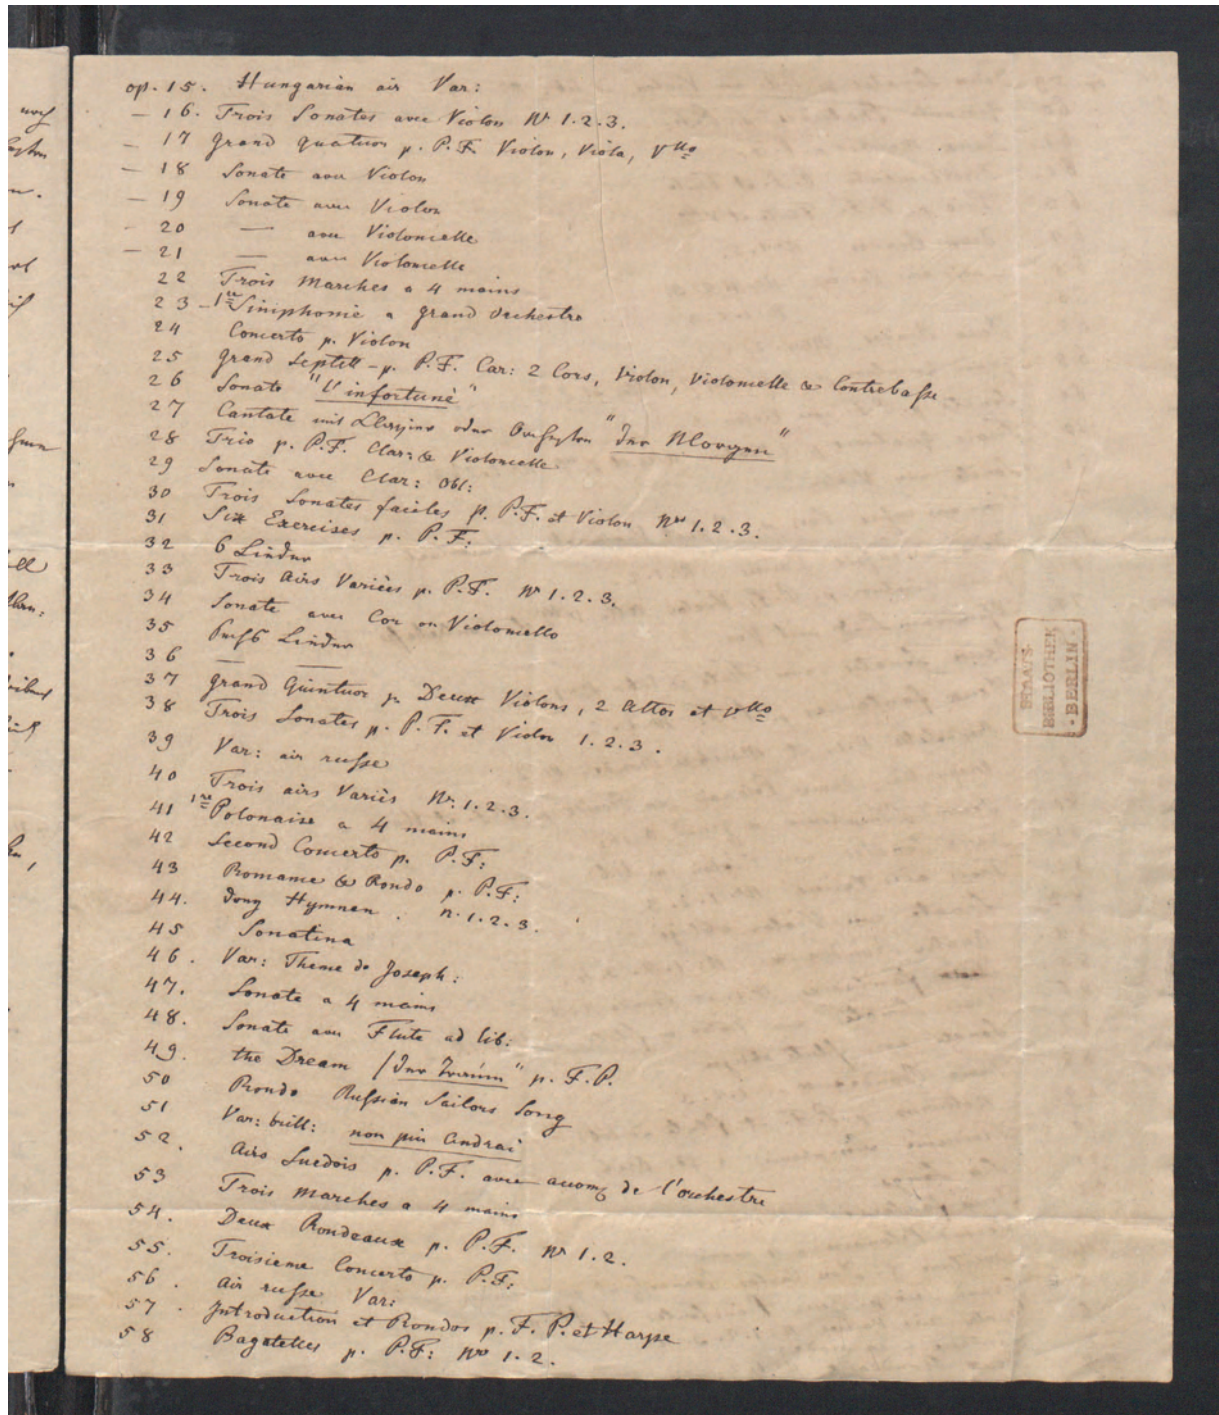 op. 15. Hungarian air Var:
— 16. Trois Sonates avec Violon Nr 1.2.3.
— 17 Grand Quatuor p. P.F. Violon, Viola, Vllo
— 18 Sonate avec Violon
— 19 Sonate avec Violon
- 20 — avec Violoncelle
— 21 — avec Violoncelle
22 Trois Marches a 4 mains
23 – 1re Siniphonie a grand Orchestre
24 Concerto p. Violon
25 Grand Septett – p. P.F. Clar: 2 Cors, Violon, Violoncelle & Contrebasse
26 Sonate "L'infortuné"
27 Cantate mit Clavier oder Orchester "Der Morgen"
28 Trio p. P.F. Clar: & Violoncelle
29 Sonate avec Clar: Obl:
30 Trois Sonates faciles p. P.F. et Violon Nro 1.2.3.
31 Six Exercises p. P.F:
32 6 Lieder
33 Trois Airs Variées p. P.F. Nr 1.2.3.
34 Sonate avec Cor ou Violoncello
35 Sechs Lieder
36 — —
37 Grand Quintuor p. Deux Violons, 2 Altos et Vllo
38 Trois Sonates p. P.F. et Violon 1.2.3.
39 Var: air russe
40 Trois airs Variés Nr. 1.2.3.
41 1re Polonaise a 4 mains
42 Second Concerto p. P.F:
43 Romance & Rondo p. P.F:
44. Drey Hymnen. n. 1.2.3.
45 Sonatina
46. Var: Theme de Joseph:
47. Sonate a 4 mains
48. Sonate avec Flute ad lib:
49. the Dream /Der Traum" p. F.P.
50 Rondo Russian Sailors Song
51 Var: brill: non piu andrai
52. Airs Suedois p. P.F. avec accomp de l'orchestre
53 Trois Marches a 4 mains
54. Deux Rondeaux p. P.F. Nr 1.2.
55. Troisieme Concerto p. P.F:
56. Air russe Var:
57. Introduction et Rondos p. F.P. et Harpe
58 Bagatelles p. P.F: Nro 1.2.
STAATS-
BIBLIOTHEK
·BERLIN·